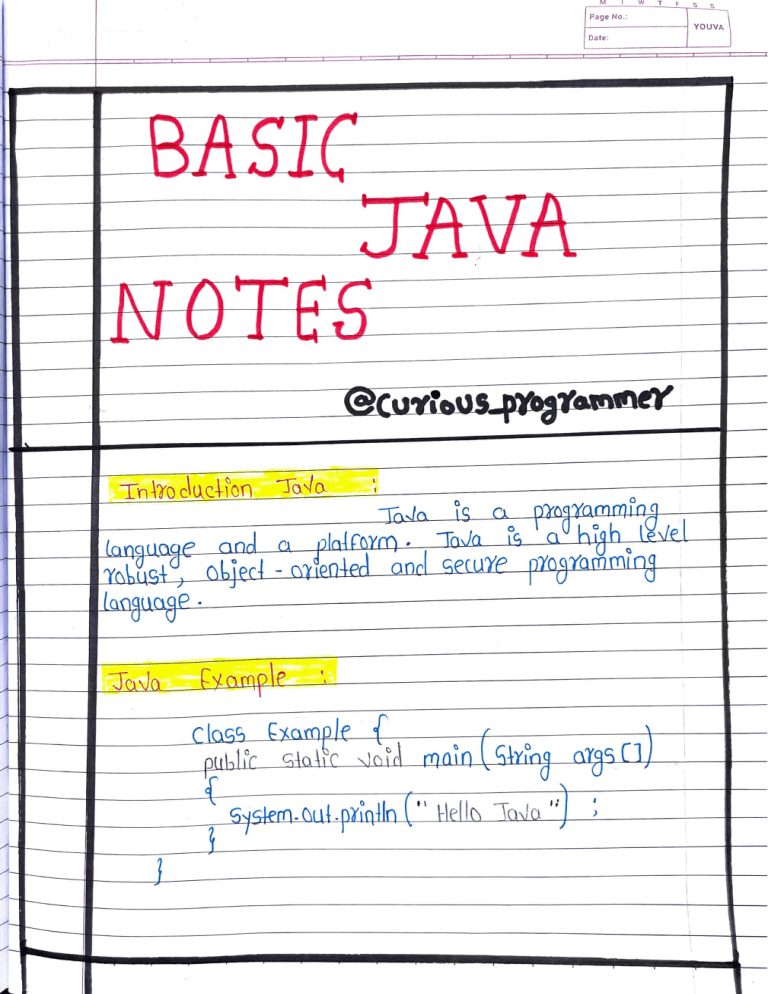 M T W T F S S
Page No.:
YOUVA
Date:
BASIC
JAVA
NOTES
@curious_programmer
Introduction Java :
Java is a programming
language and a platform. Java is a high level
robust, object-oriented and secure programming
language.
Java Example :
class Example {
public static void main (String args [])
{
System.out.println (" Hello Java ") ;
}
}